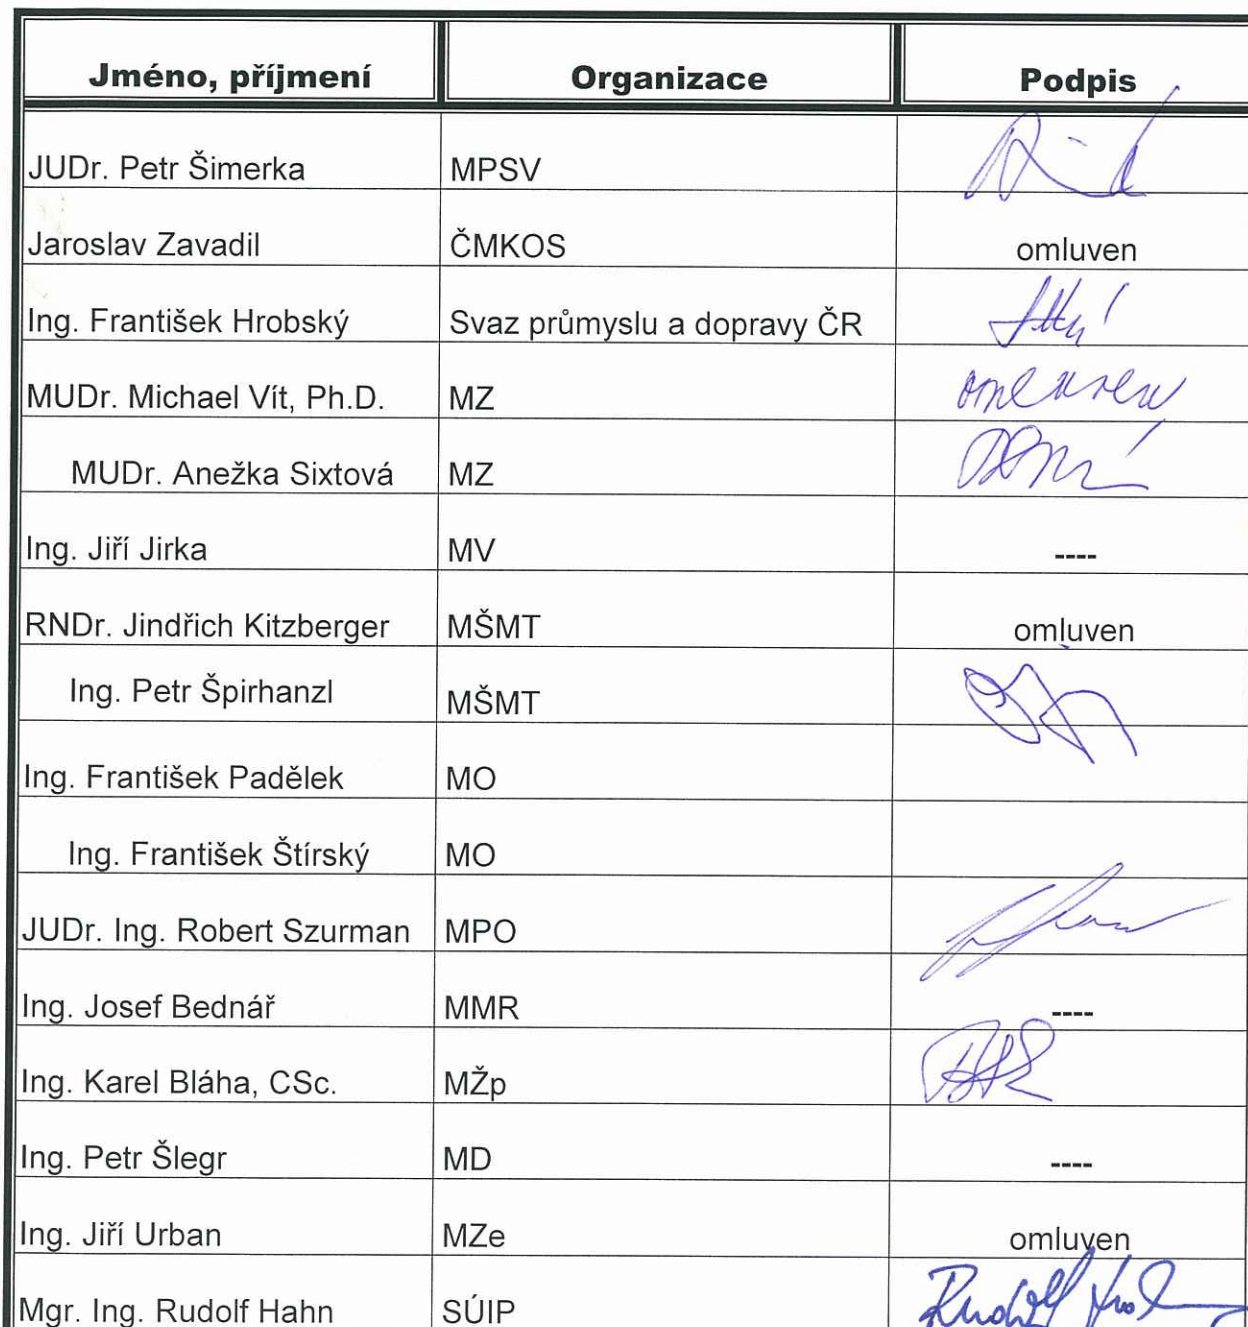 Jméno, příjmení Organizace Podpis
JUDr. Petr Šimerka MPSV
Jaroslav Zavadil ČMKOS omluven
Ing. František Hrobský Svaz průmyslu a dopravy ČR
MUDr. Michael Vít, Ph.D. MZ omluven
MUDr. Anežka Sixtová MZ
Ing. Jiří Jirka MV ----
RNDr. Jindřich Kitzberger MŠMT omluven
Ing. Petr Špirhanzl MŠMT
Ing. František Padělek MO
Ing. František Štírský MO
JUDr. Ing. Robert Szurman MPO
Ing. Josef Bednář MMR ----
Ing. Karel Bláha, CSc. MŽp
Ing. Petr Šlegr MD ----
Ing. Jiří Urban MZe omluven
Mgr. Ing. Rudolf Hahn SÚIP Rudolf